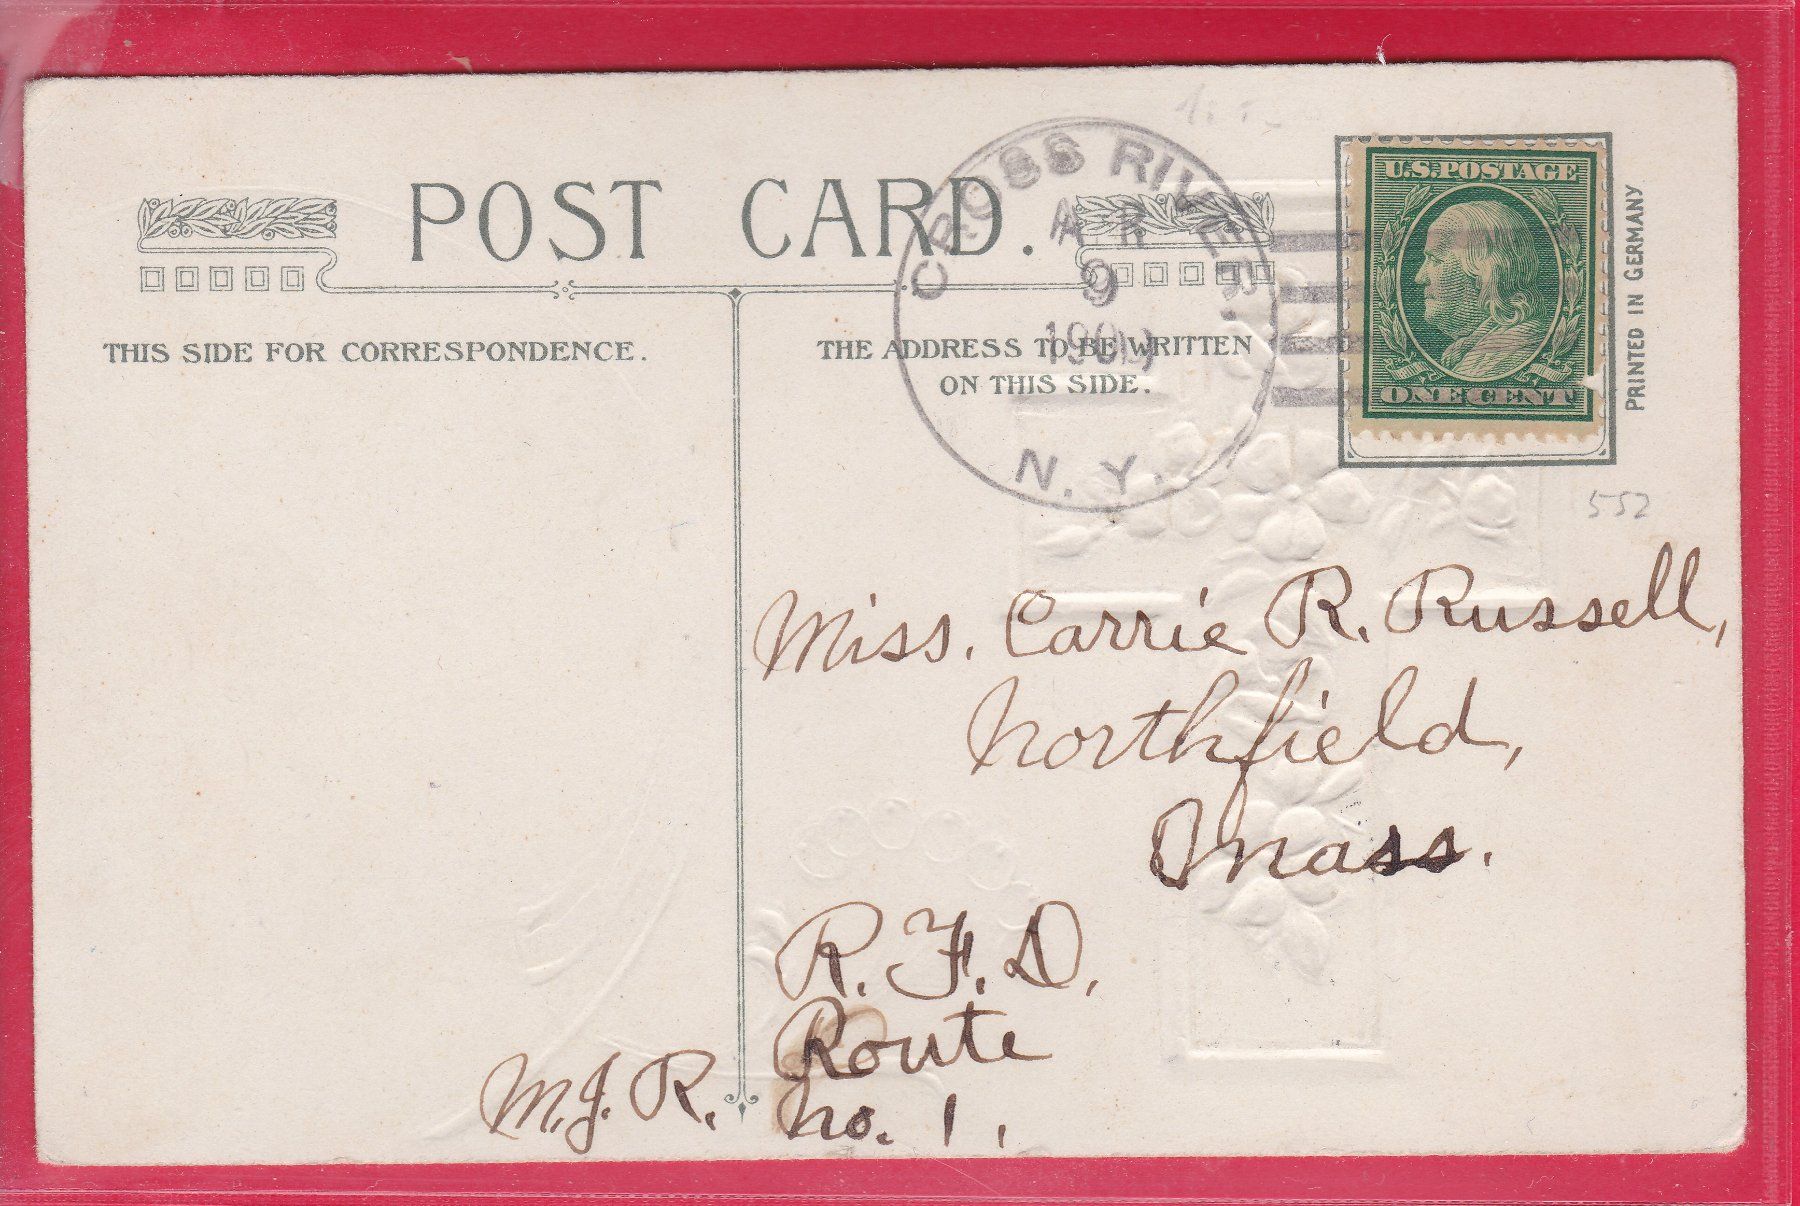 POST CARD.
THIS SIDE FOR CORRESPONDENCE.
THE ADDRESS TO BE WRITTEN
ON THIS SIDE.
CROSS RIVER,
9
N. Y.
U.S. POSTAGE
ONE CENT
PRINTED IN GERMANY
552
Miss. Carrie R. Russell,
Northfield,
Mass.
R. F. D.
Route
No. 1,
M. J. R.